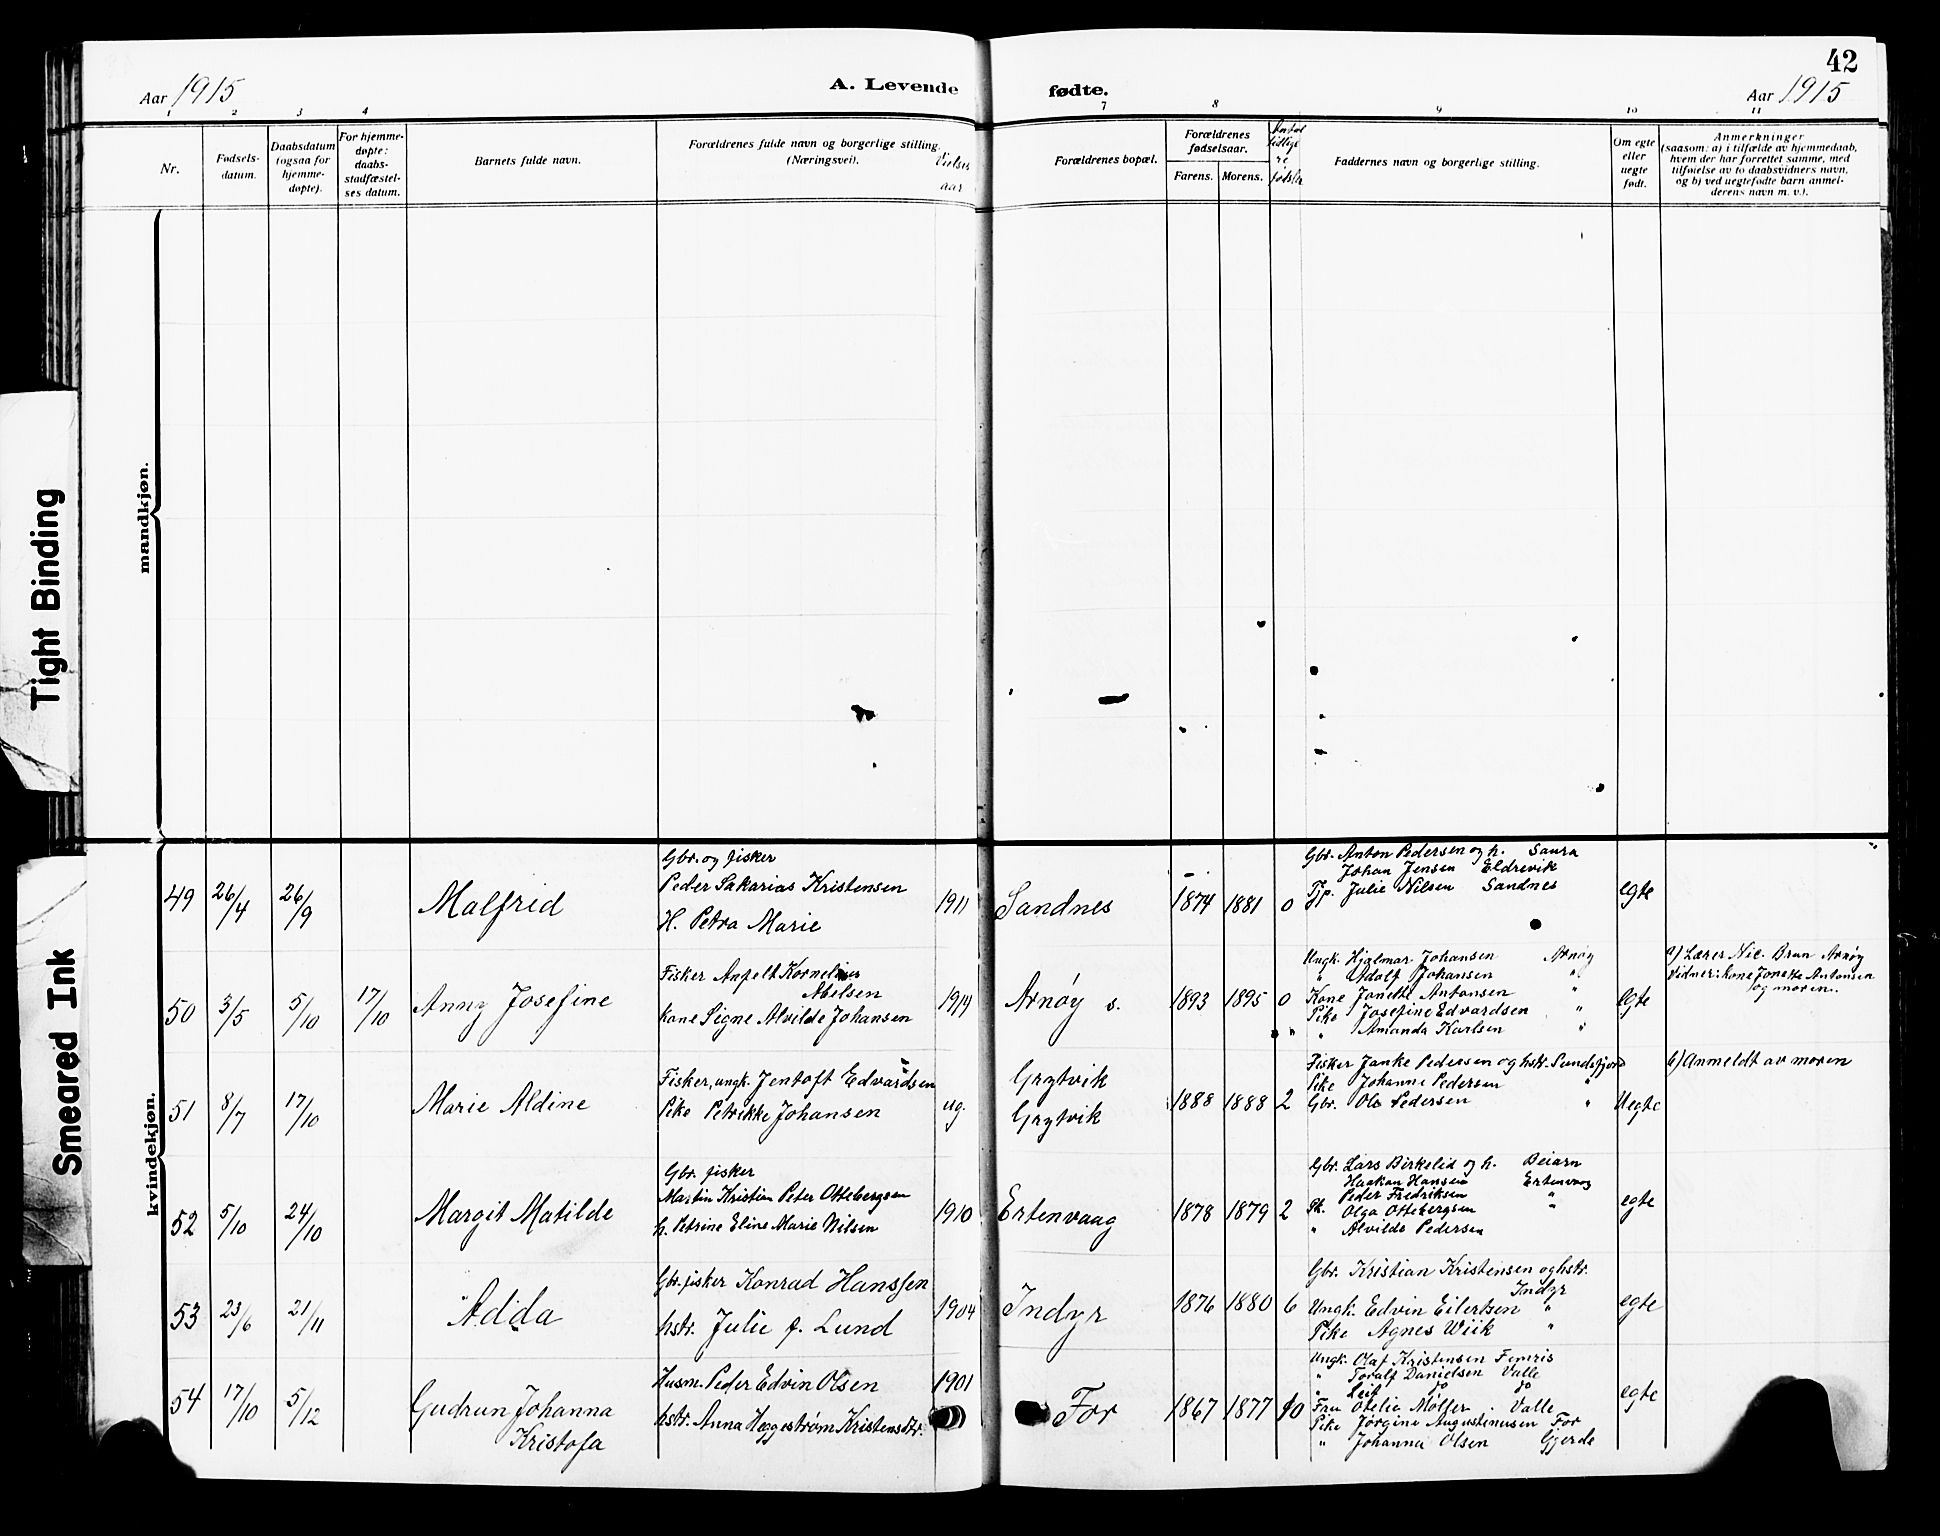 42
Aar 1915
A. Levende
fødte.
Aar 1915
1 2 3 4 7 8 9 10 11
Nr.
Fødsels-
datum.
Daabsdatum
(ogsaa for
hjemme-
døpte).
For hjemme-
døpte:
daabs-
stadfæstel-
ses datum.
Barnets fulde navn.
Forældrenes fulde navn og borgerlige stilling.
(Næringsvei).
Vielses
aar
Forældrenes bopæl.
Forældrenes
fødselsaar.
Farens. Morens.
Antal
tidlige
re
fødsler
Faddernes navn og borgerlige stilling.
Om egte
eller
uegte
født.
Anmerkninger
(saasom: a) i tilfælde av hjemmedaab,
hvem der har forrettet samme, med
tilføielse av to daabsvidners navn,
og b) ved uegtefødte barn anmel-
derens navn m. v.).
mandkjøn.
Tight Binding
Smeared Ink
kvindekjøn.
49 26/4 26/9 Malfrid
Gbr. og fisker
Peder Sakarias Kristensen
H. Petra Marie
1911 Sandnes 1874 1881 0
Gbr. Anton Pedersen og h. Saura
Johan Jensen Eldrevik
Tjp. Julie Nilsen Sandnes
egte
50 3/5 5/10 17/10 Anny Josefine
Fisker Anfelt Kornelius
Abelsen
kone Signe Alvilde Johansen
1914 Arnøy s. 1893 1895 0
Ungk. Hjalmar Johansen Arnøy
" Adolf Johansen "
Kone Janette Antonsen "
Pike Josefine Edvardsen "
" Amanda Karlsen "
egte
a) Lærer Nic. Brun Arnøy
Vidner: kone Janette Antonsen
og moren.
51 8/7 17/10 Marie Aldine
Fisker, ungk. Jentoft Edvardsen
Pike Petrikke Johansen
ug.
Grytvik
Grytvik
1888 1888 2
Fisker Janke Pedersen og hstr. Sundsfjord
Pike Johanne Pedersen "
Gbr. Ole Pedersen "
Uegte
b) Anmeldt av moren
52 5/10 24/10 Margit Matilde
Gbr. fisker
Martin Kristian Peter Ottebergsen
h. Petrine Eline Marie Nilsen
1910 Ertenvaag 1878 1879 2
Gbr. Lars Birkelid og h. Beiarn
Haakon Hansen Ertenvaag
Peder Fredriksen "
Pk. Olga Ottebergsen "
" Alvilde Pedersen
egte
53 23/6 21/11 Adda
Gbr. fisker Konrad Hanssen
hstr. Julie f. Lund
1904 Indyr 1876 1880 6
Gbr. Kristian Kristensen og hstr.
Indyr
Ungk. Edvin Eilertsen "
Pike Agnes Wiik "
egte
54 17/10 5/12 Gudrun Johanna
Kristofa
Husm. Peder Edvin Olsen
hstr. Anna Heggestrøm Kristensdtr.
1901 For 1867 1877 10
Ungk. Olaf Kristensen Femris
" Toralf Danielsen Valle
" Leif do do
Fru Otelie Møller . Valle
Pike Jørgine Augustinusen For
" Johanna Olsen Gjerde
egte